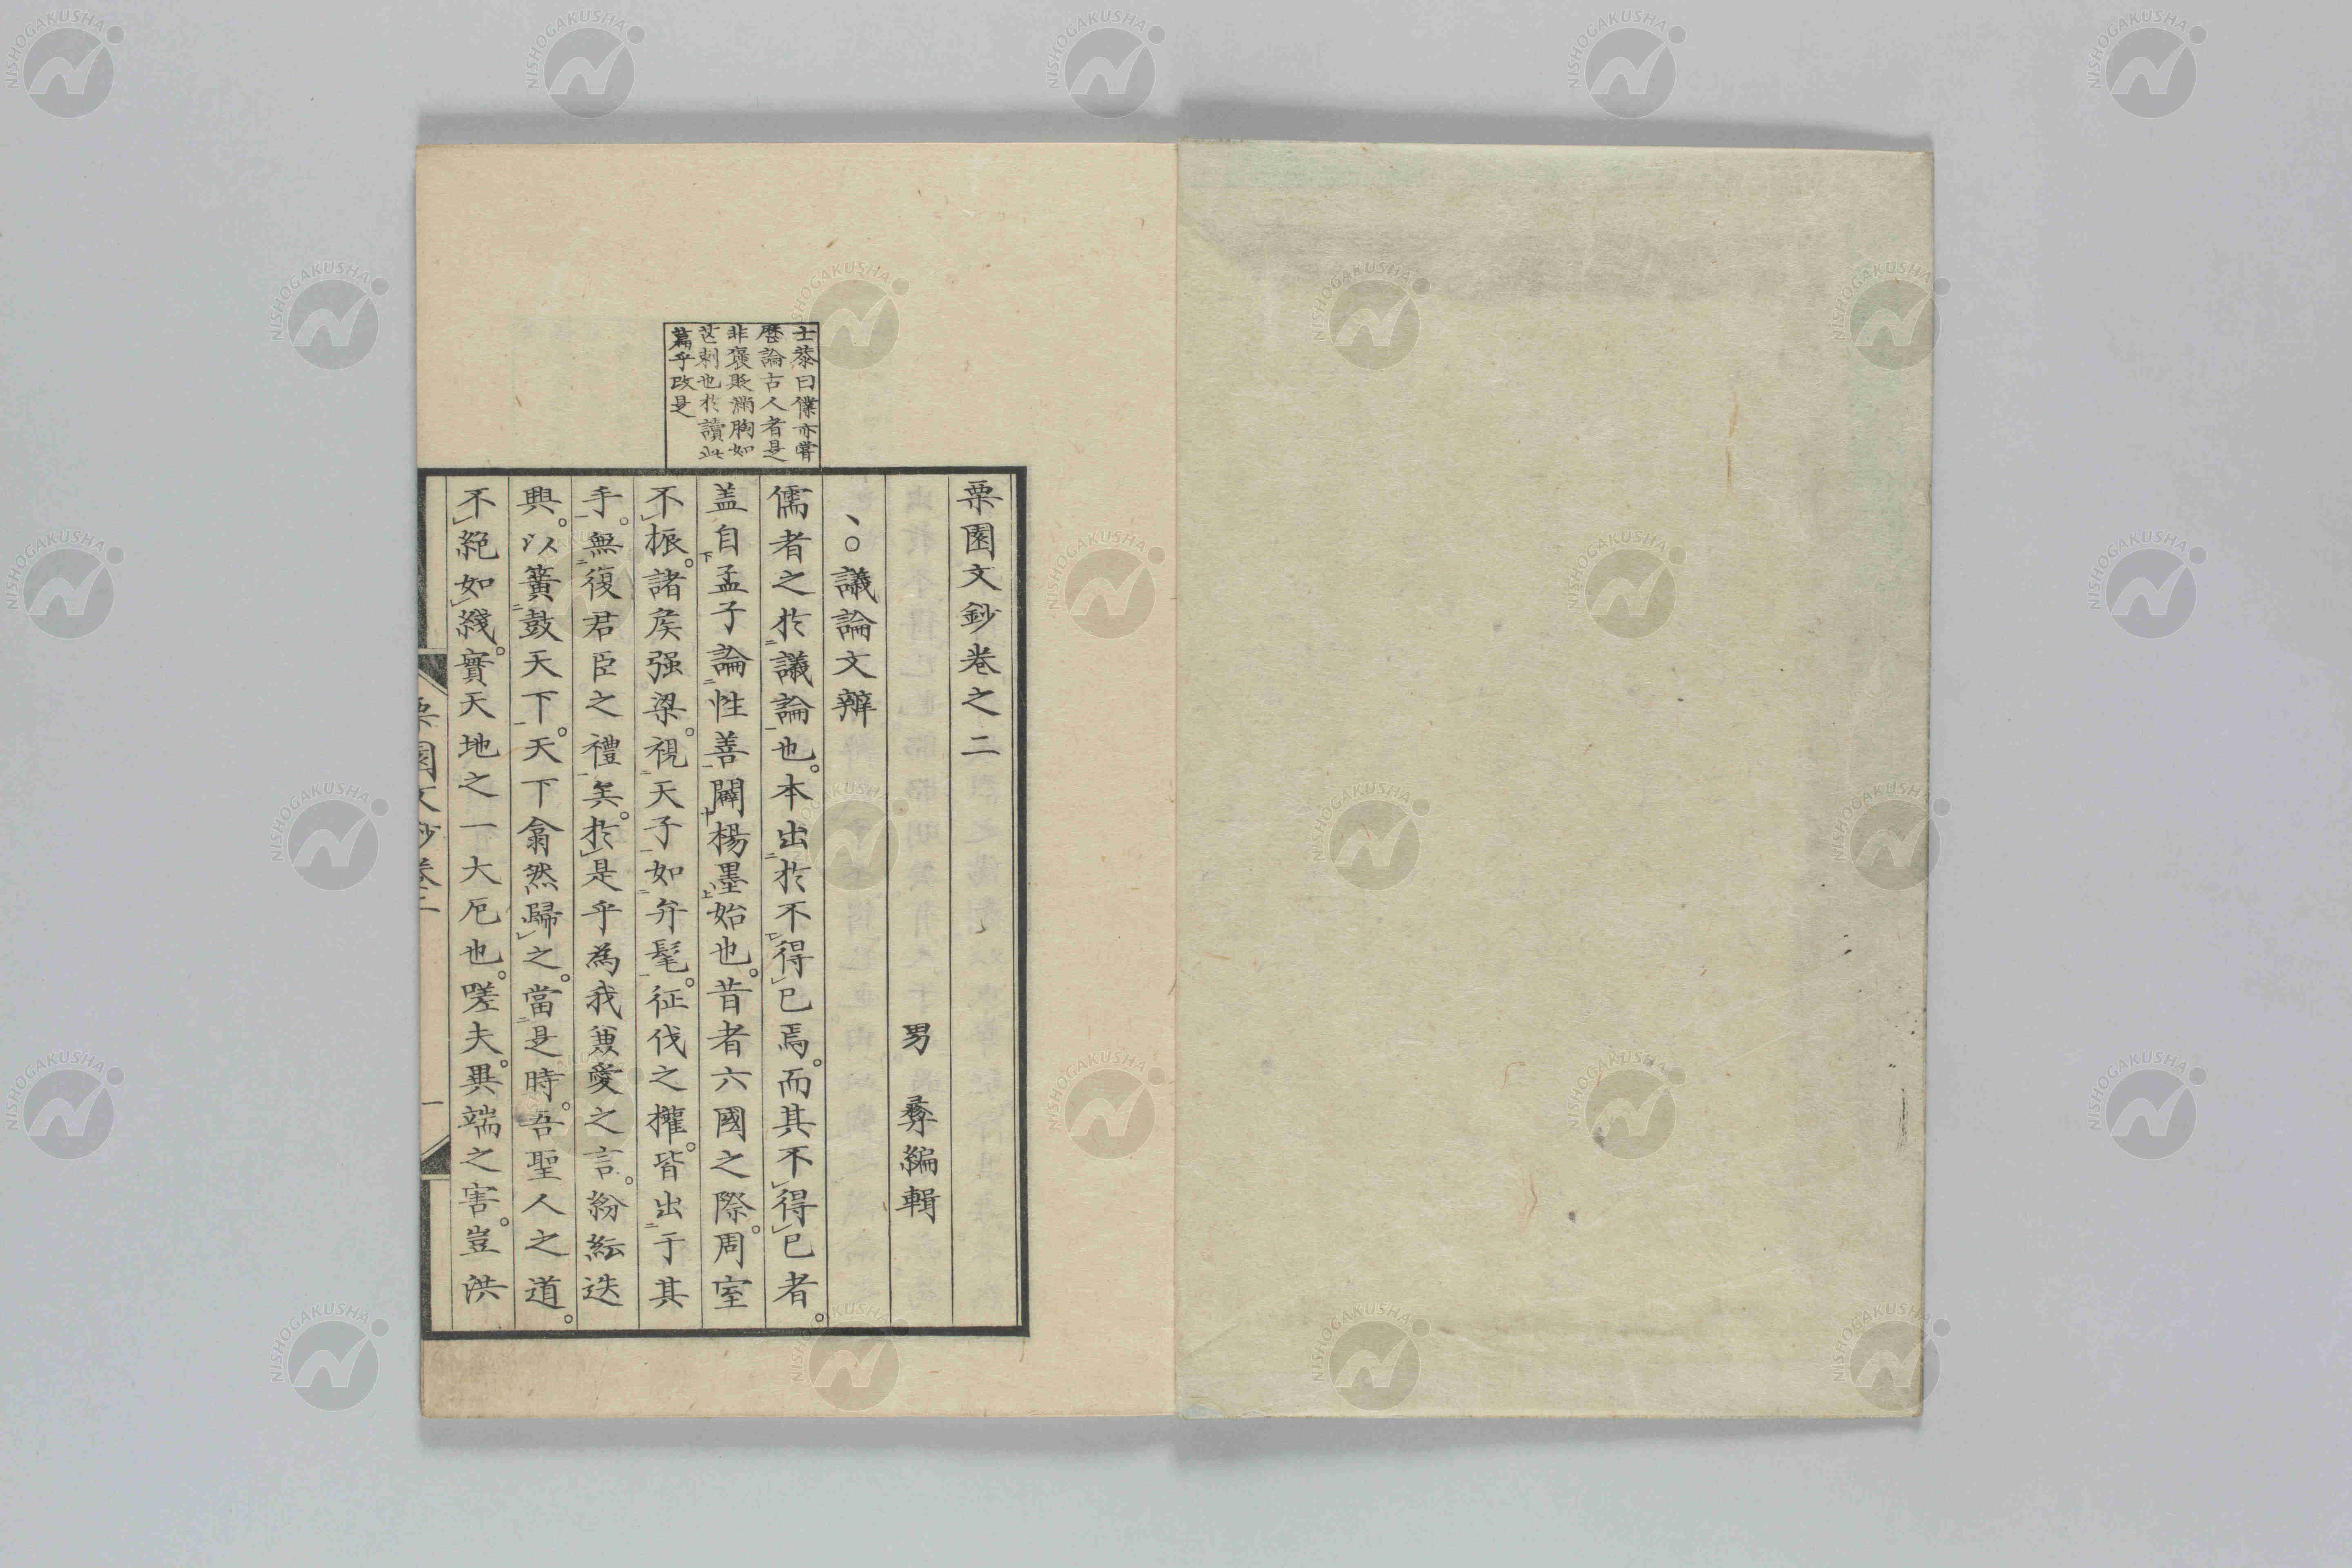 栗園文鈔卷之二
男　彝編輯
、○議論文辨
儒者之於議論也。本出於不得已焉。而其不得已者。
盖自孟子論性善闢楊墨始也。昔者六國之際。周室
不振。諸矦强梁。視天子如弁髦。征伐之權。皆出于其
手。無復君臣之禮矣。於是乎為我兼愛之言。紛紜迭
興。以簧鼓天下。天下翕然歸之。當是時。吾聖人之道。
不絶如綫。實天地之一大厄也。嗟夫。異端之害。豈洪
士恭曰僕亦嘗
歷論古人者是
非褒貶滿胸如
芒刺也於讀此
篇乎改是
栗園文鈔卷二
一
NISHOGAKUSHA